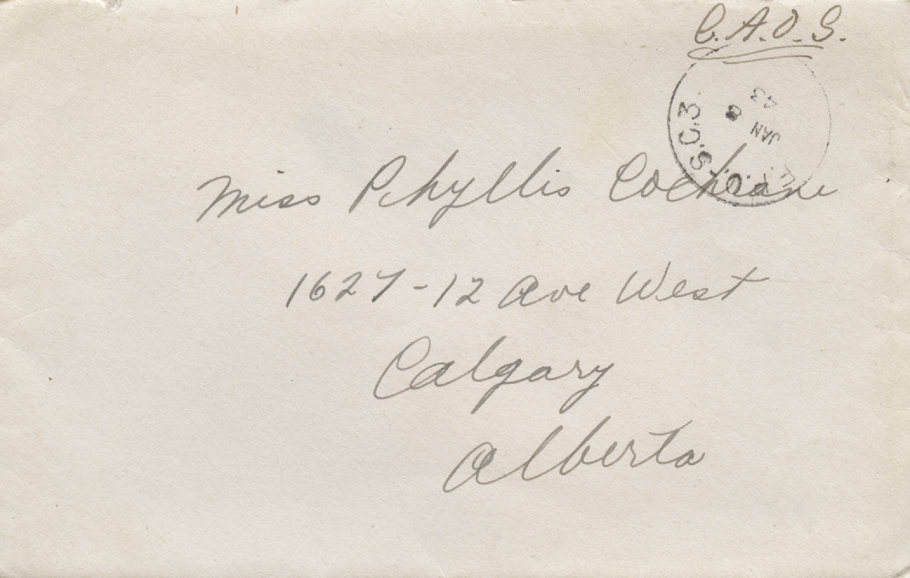 C.A.O.S.
S.C.3
JAN 8
43
Miss Phyllis Cochrane
1627-12 Ave West
Calgary
Alberta